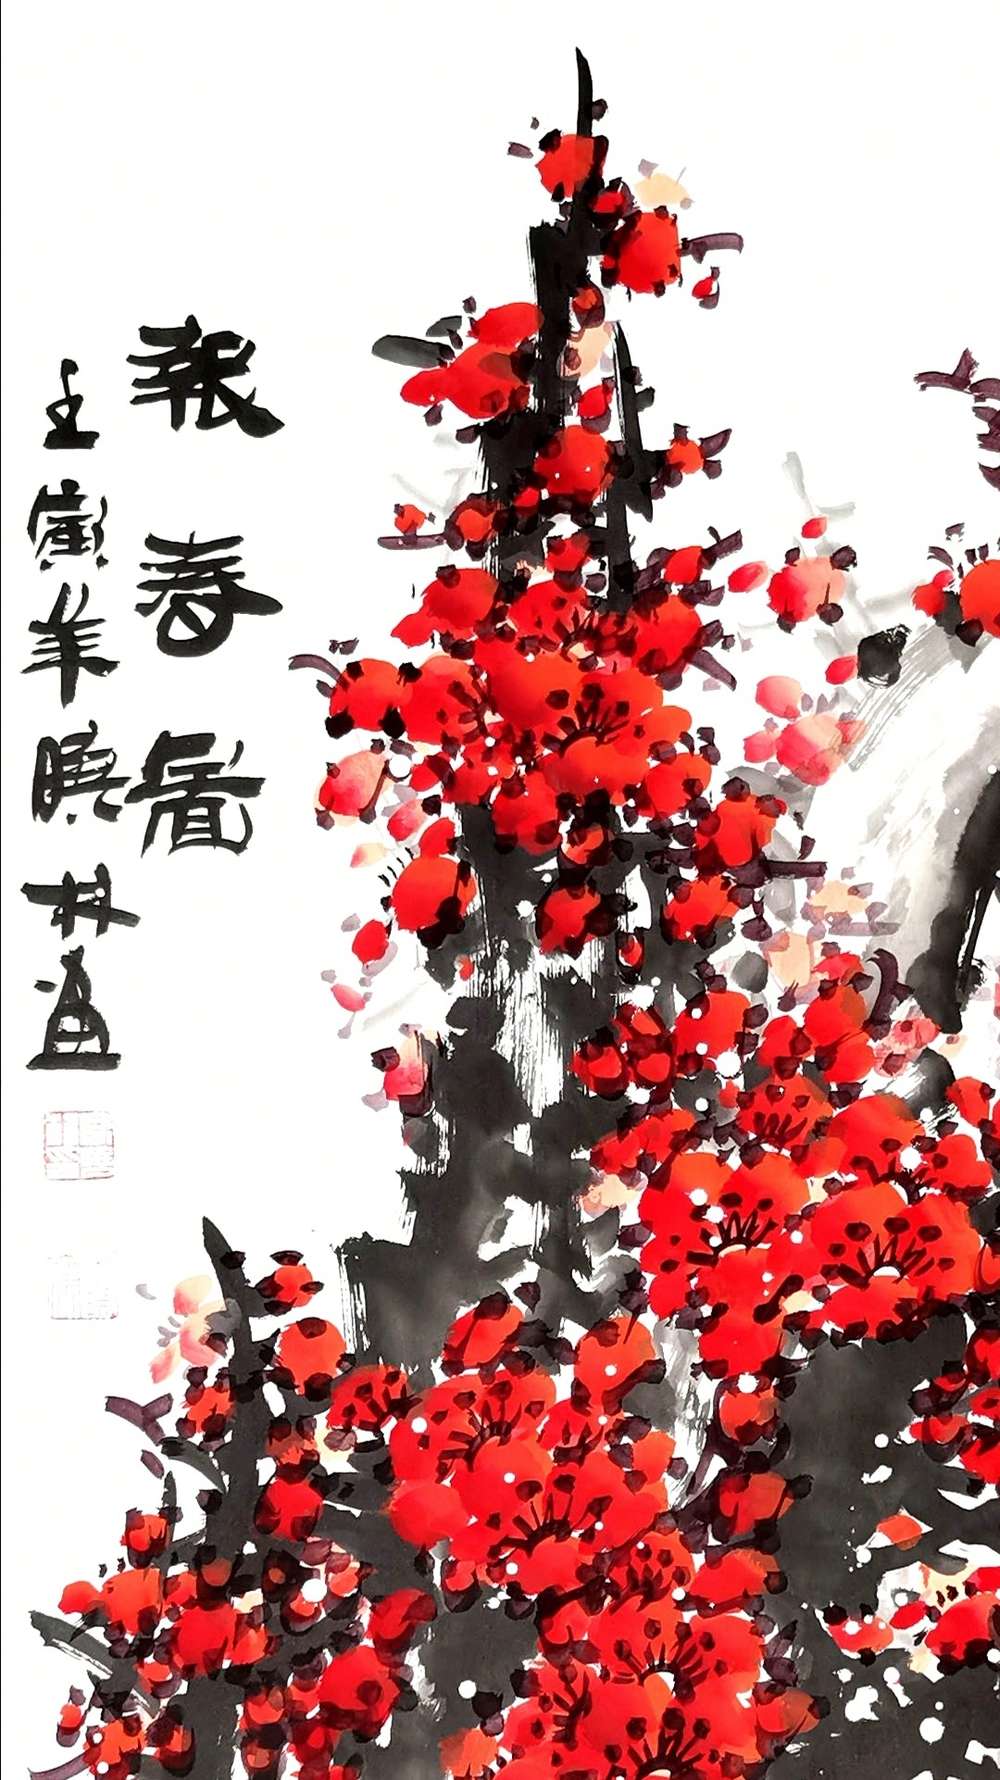 報春圖
壬寅年曉林畫